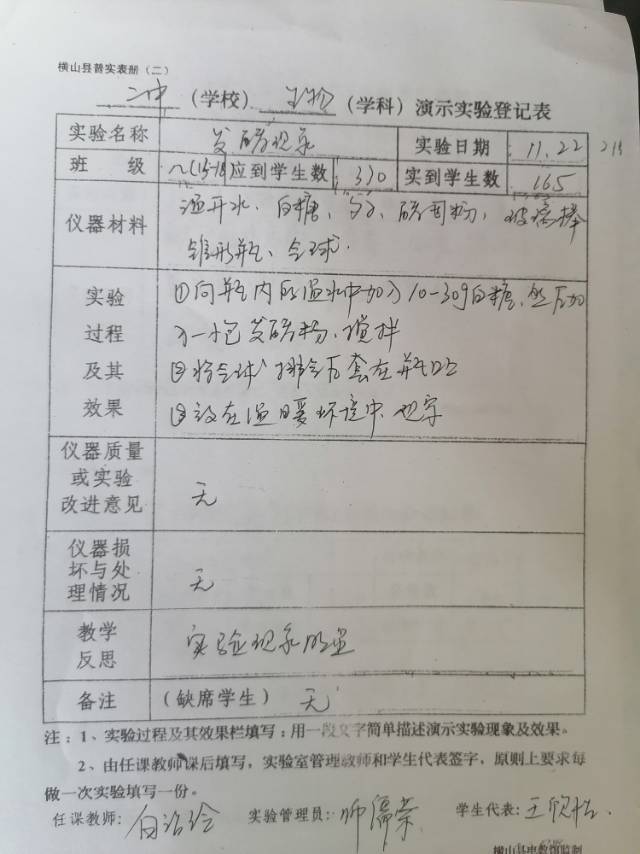 横山县普实表册（二）
二中（学校）生物（学科）演示实验登记表
实验名称 发酵现象 实验日期 11.22
班 级 八(15-18) 应到学生数 330 实到学生数 165
仪器材料 温开水、白糖、勺、酵母粉、玻璃棒
锥形瓶、气球.
实验过程及其效果 ①向瓶内的温水中加入10-30g白糖,然后加
入一小包发酵粉,搅拌
②将气球排气后套在瓶口
③放在温暖环境中,观察
仪器质量或实验改进意见 无
仪器损坏与处理情况 无
教学反思 实验现象明显
备注 （缺席学生） 无
注：1、实验过程及其效果栏填写：用一段文字简单描述演示实验现象及效果。
2、由任课教师课后填写，实验室管理教师和学生代表签字，原则上要求每
做一次实验填写一份。
任课教师: 白 实验管理员: 师 荣 学生代表: 王欣怡
横山县电教馆监制